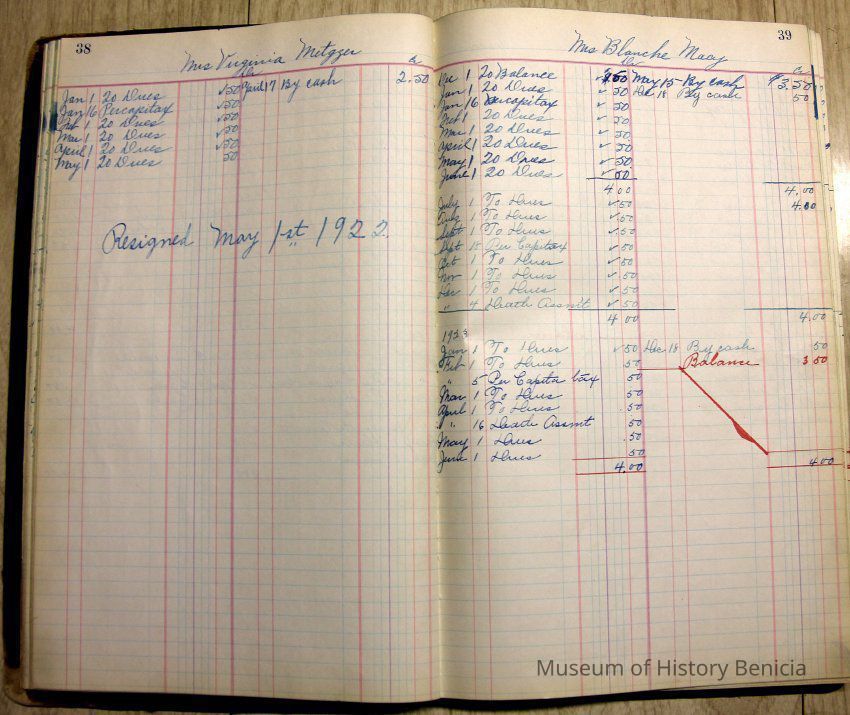 38
Mrs Virginia Metzger
Dr Cr
Jan 1 20 Dues √50 April 17 By cash 2.50
Jan 16 Percapitax √50
Feb 1 20 Dues √50
Mar 1 20 Dues √50
April 1 20 Dues √50
May 1 20 Dues 50
Resigned May 1st 1922.
39
Mrs Blanche Macy
Dr Cr
Dec 1 20 Balance May 15 By cash $3.50
Jan 1 20 Dues √50 Dec 18 By cash 50
Jan 16 Percapitax √50
Feb 1 20 Dues √50
Mar 1 20 Dues √50
April 1 20 Dues √50
May 1 20 Dues √50
June 1 20 Dues √50
4.00 4.00
July 1 To Dues √50 4.00
Aug 1 To Dues √.50
Sept 1 To Dues √.50
Sept 18 Per Capitax √50
Oct 1 To Dues √.50
Nov 1 To Dues √.50
Dec 1 To Dues √.50
" 4 Death Assmt √50
4 00 4.00
1923
Jan 1 To Dues √50 Dec 18 By cash 50
Feb 1 To Dues .50 Balance 3 50
" 5 Per Capita tax 50
Mar 1 To Dues 50
April 1 To Dues .50
" 16 Death Assmt 50
May 1 Dues .50
June 1 Dues 50
4.00 4 00
Museum of History Benicia